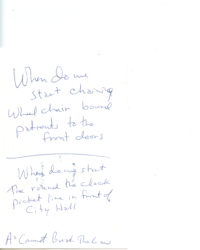 When do we
start chaining
wheel chair bound
patients to the
front doors
When do we start
the round the clock
picket line in front of
City Hall